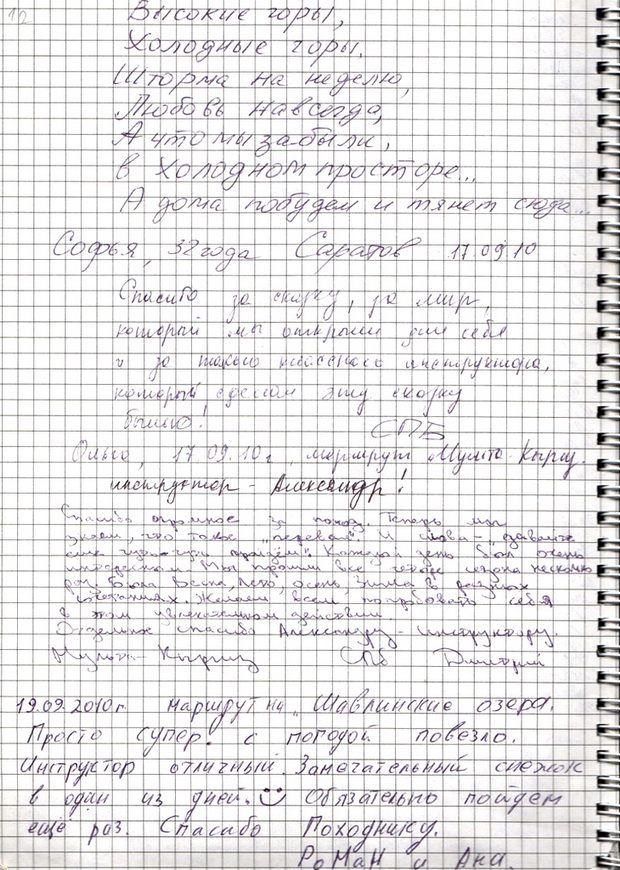 12
Высокие горы,
Холодные горы.
Шторма на неделю,
Любовь навсегда,
А что мы забыли,
в Холодном просторе...
А дома побудем и тянет сюда...
Софья, 32 года Саратов 17.09.10
Спасибо за сказку, за мир,
который мы открыли для себя
и за такого классного инструктора,
который сделал эту сказку
былью!
СПБ
Ольга, 17.09.10 г, маршрут "Мульта-Кырлу.
инструктор - Александр!
Спасибо огромное за поход. Теперь мы
знаем, что такое "перевал" и слова - "давайте
ещё чуть-чуть пройдём". Каждый день был очень
интересным. Мы прошли все четыре сезона несколько
раз. Была Весна, Лето, Осень, Зима в разных
сочетаниях. Желаем всем попробовать себя
в этом увлекательном действии.
Отдельное спасибо Александру - инструктору.
Мульта - СПб Дмитрий
19.09.2010 г. маршрут на "Шавлинские озера.
Просто супер. с погодой повезло.
Инструктор отличный. Замечательный снежок
в один из дней. Обязательно пойдем
ещё раз. Спасибо Походнику.
Роман и Аня.